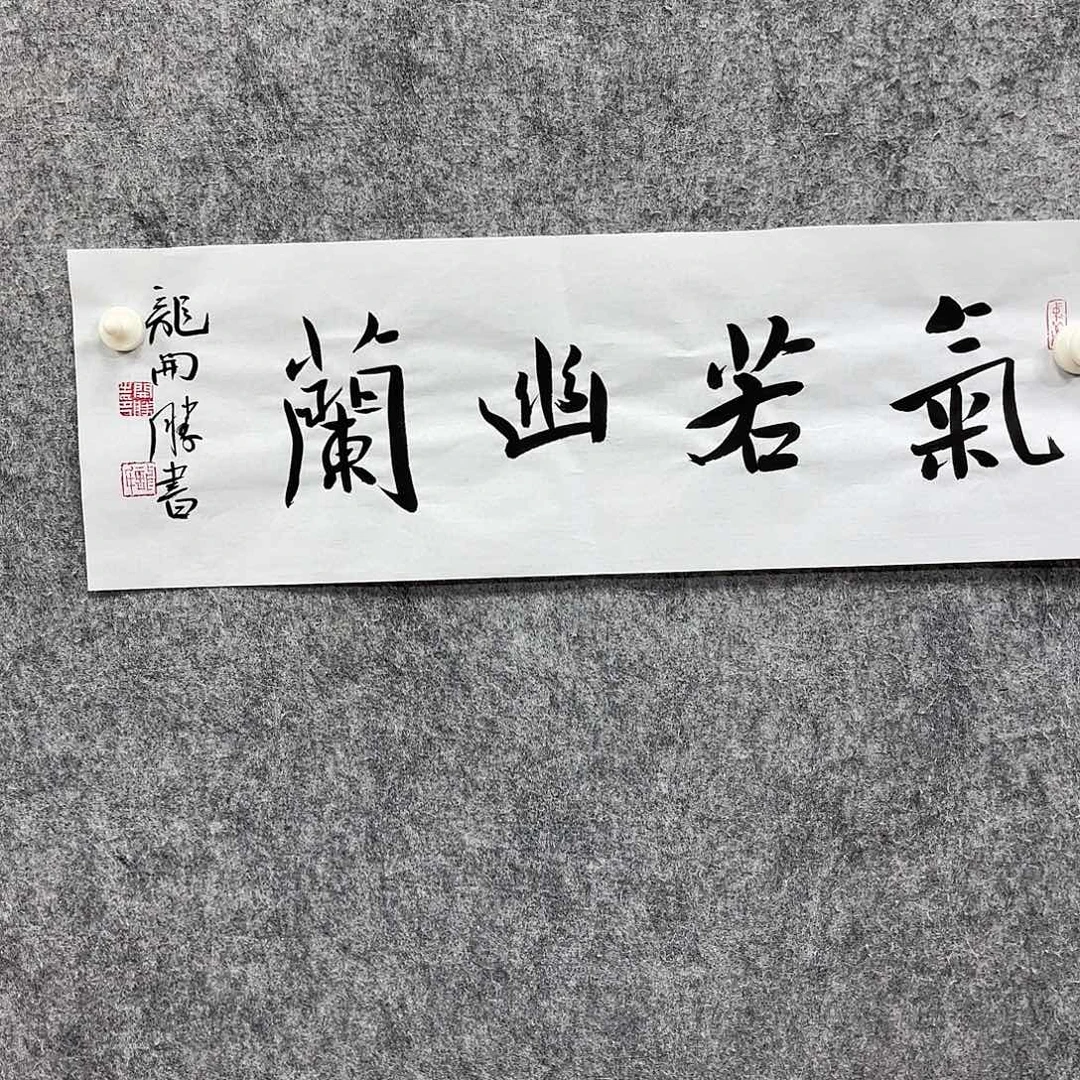 氣若幽蘭
龍開勝書